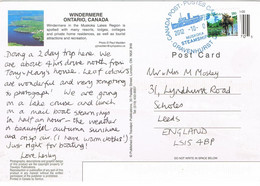 WINDERMERE
ONTARIO, CANADA
Windermere in the Muskoka Lakes Region is
spotted with many resorts, lodges, cottages
and private home residences, as well as
attractions and recreation.
Doing a 2 day trip here. We
are about 2 hrs drive north from
Tony & Mary's home. Lot of colours
are wonderful and very tempting
to photograph! We are going
on a lake cruise and lunch
on a mail boat steamship
in half an hour - the weather
is beautiful, autumn sunshine
and crisp air (I have warm clothes!)
Just right for boating!
Love Lesley
STEAMSHIP
GRAVENHURST
Post Card
Mr & Mrs M Mosley
31, Lyndhurst Road
Scholes
Leeds
ENGLAND
LS15 4BP